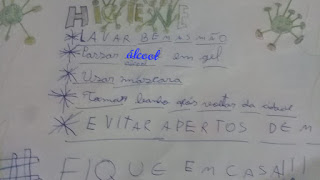 HIGIENE
LAVAR BEM AS MÃO
Passar álcool em gel
álcool
Usar máscara
Tomar banho após voltar da
EVITAR APERTOS DE M
# FIQUE EM CASA!!!